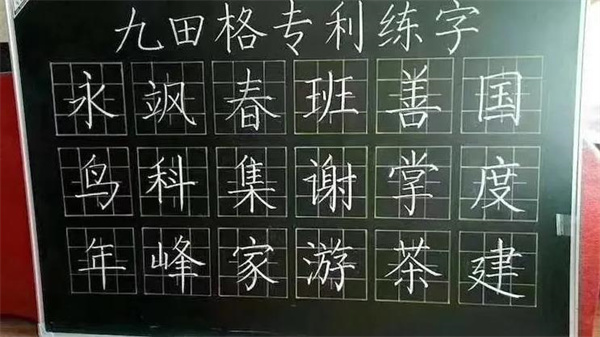 九田格专利练字
永飒春班善国
鸟科集谢掌度
年峰家游茶建